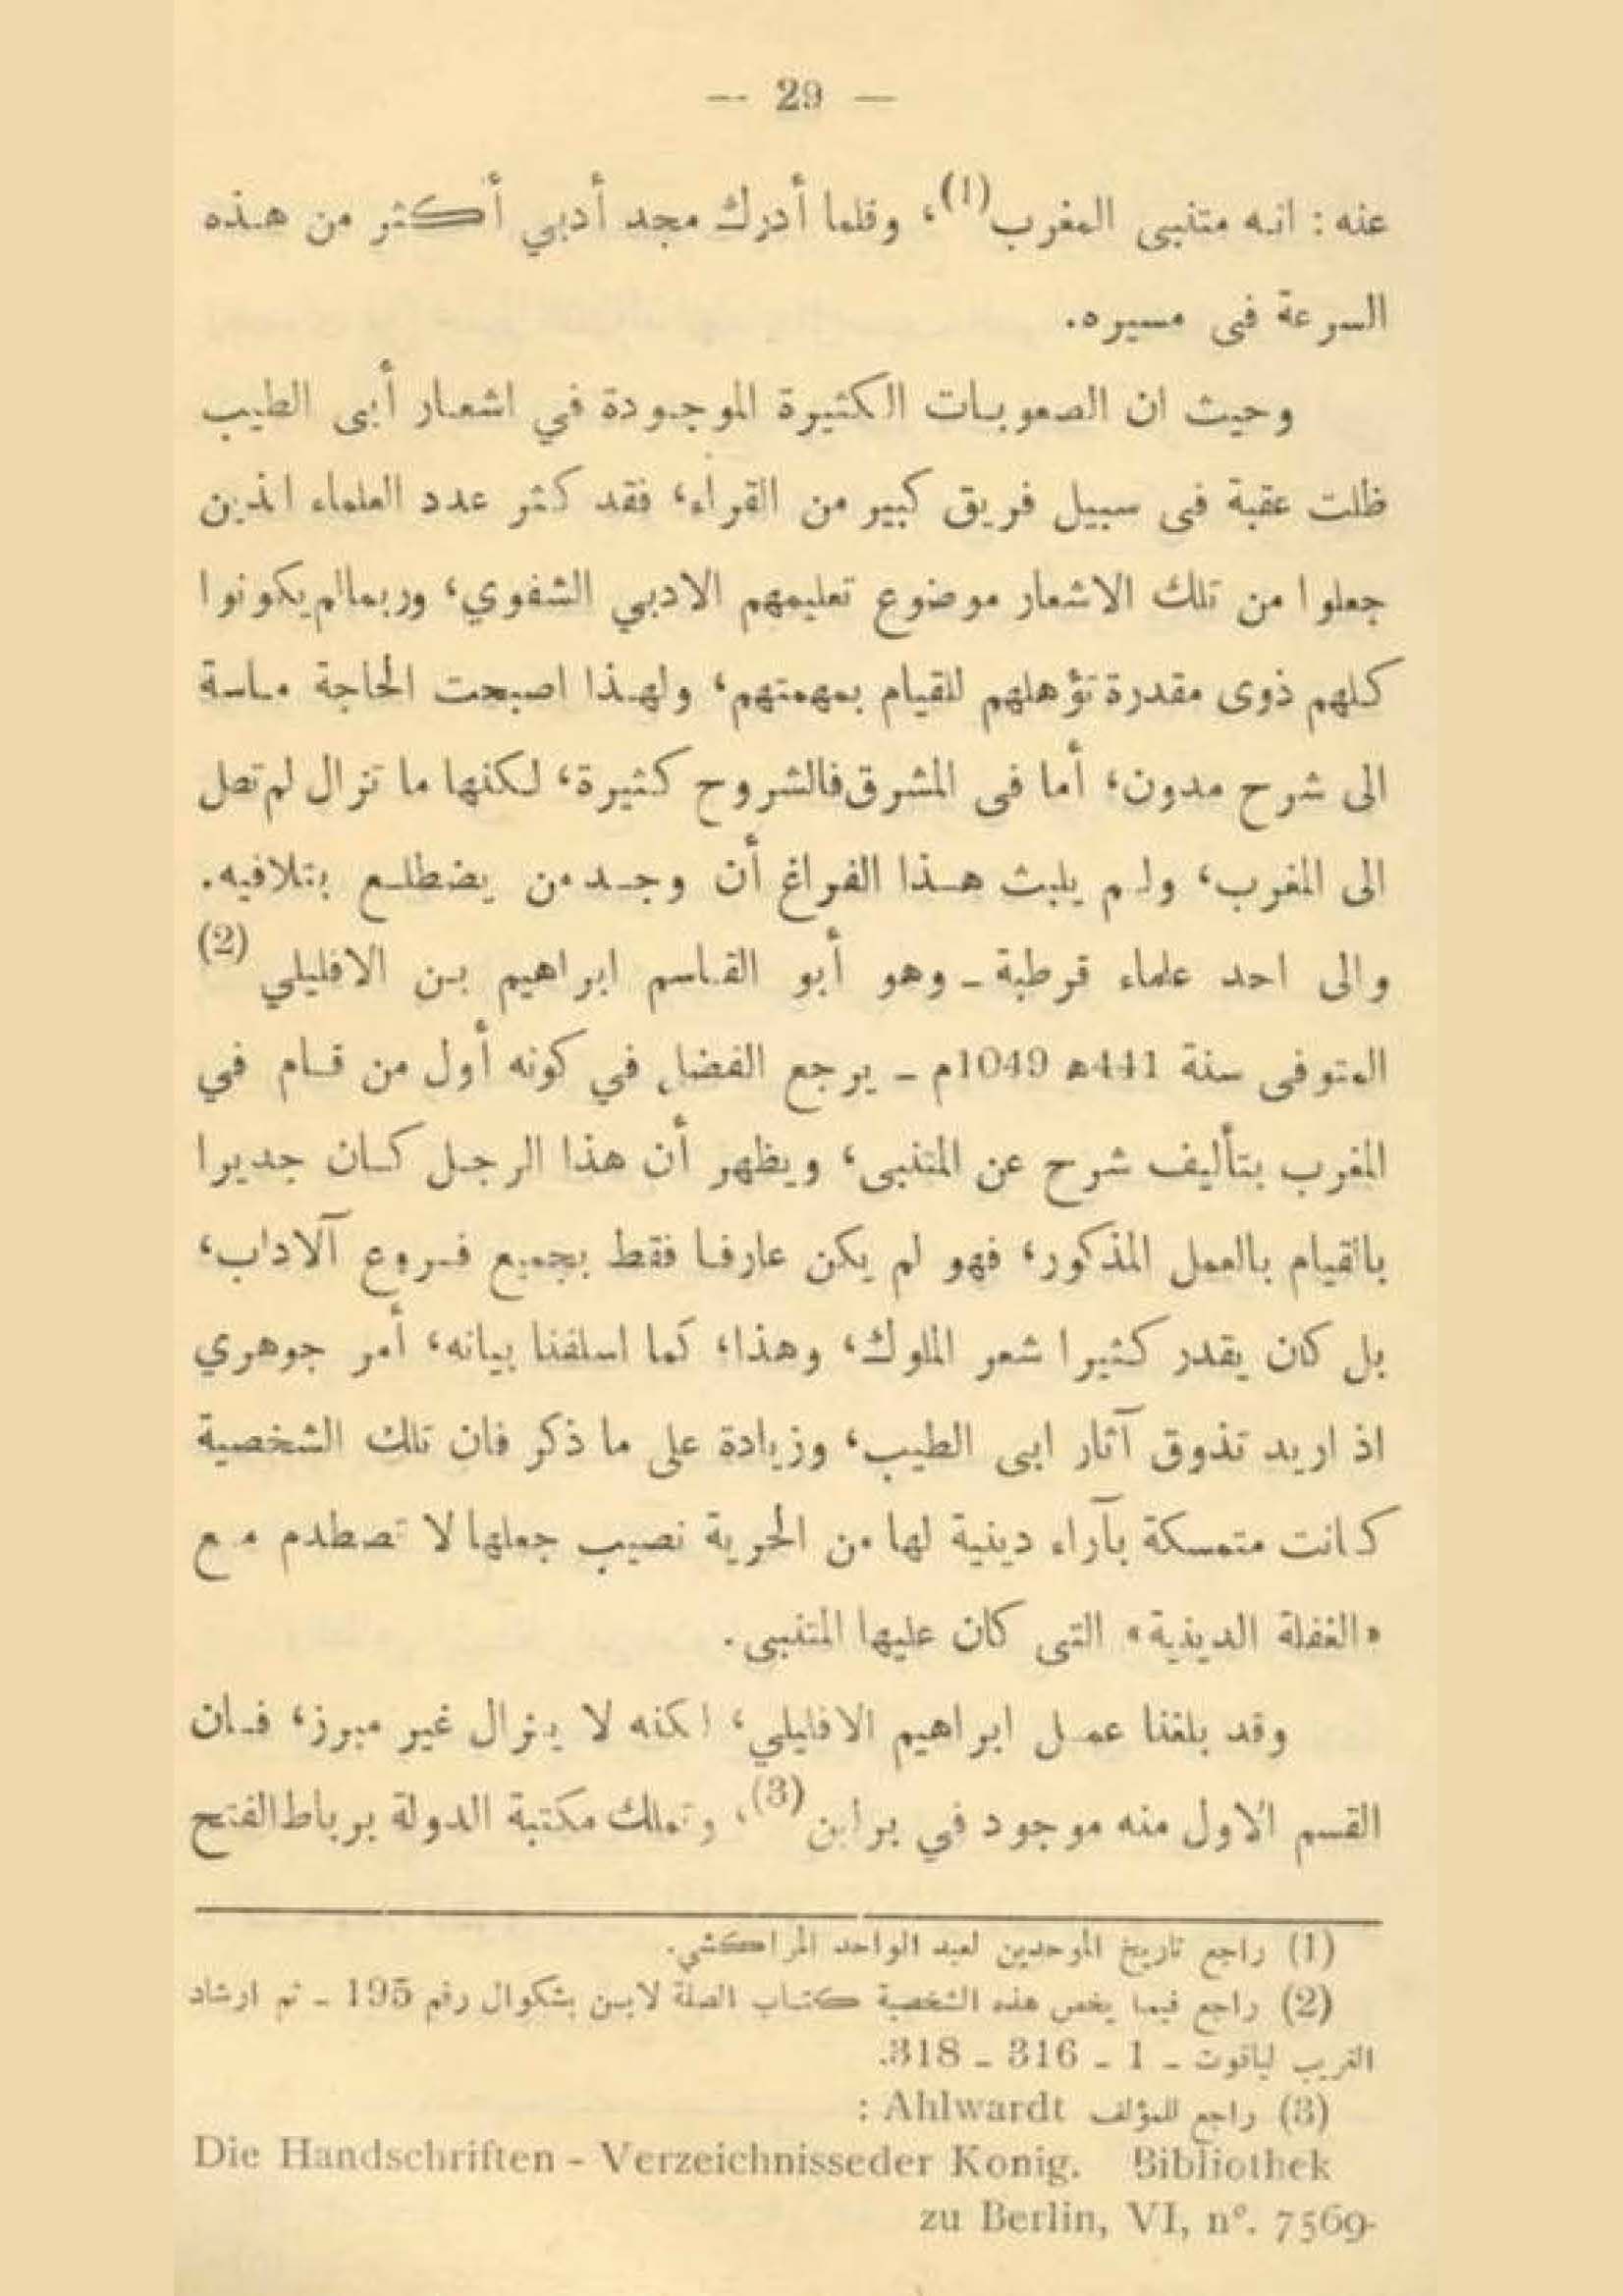 — 29 —
عنه : انه متنبى المغرب(1)، وقلما أدرك مجد أدبي أكثر من هذه
السرعة فى مسيره.
وحيث ان الصعوبات الكثيرة الموجودة في اشعار أبى الطيب
ظلت عقبة فى سبيل فريق كبير من القراء، فقد كثر عدد العلماء الذين
جعلوا من تلك الاشعار موضوع تعليمهم الادبي الشفوي، وربما لم يكونوا
كلهم ذوى مقدرة تؤهلهم للقيام بمهمتهم، ولهذا اصبحت الحاجة ماسة
الى شرح مدون، أما فى المشرق فالشروح كثيرة، لكنها ما تزال لم تصل
الى المغرب، ولم يلبث هذا الفراغ أن وجد من يضطلع بتلافيه.
والى احد علماء قرطبة - وهو أبو القاسم ابراهيم بن الافليلي (2)
المتوفى سنة 441ه 1049م - يرجع الفضل في كونه أول من قام في
المغرب بتأليف شرح عن المتنبى، ويظهر أن هذا الرجل كان جديرا
بالقيام بالعمل المذكور، فهو لم يكن عارفا فقط بجميع فروع آلاداب،
بل كان يقدر كثيرا شعر الملوك، وهذا، كما اسلفنا بيانه، أمر جوهري
اذ اريد تذوق آثار ابى الطيب، وزيادة على ما ذكر فان تلك الشخصية
كانت متمسكة بآراء دينية لها من الحرية نصيب جعلها لا تصطدم مع
«الغفلة الدينية» التى كان عليها المتنبى.
وقد بلغنا عمل ابراهيم الافليلي، لكنه لا يزال غير مبرز، فان
القسم الاول منه موجود في برلين(3)، وتملك مكتبة الدولة برباط الفتح
(1) راجع تاريخ الموحدين لعبد الواحد المراكشي.
(2) راجع فيما يخص هذه الشخصية كتاب الصلة لابن بشكوال رقم 195 - ثم ارشاد
الغريب لياقوت - 1 - 316 - 318.
(3) راجع للمؤلف Ahlwardt :
Die Handschriften - Verzeichnisseder Konig. Bibliothek
zu Berlin, VI, n°. 7569-